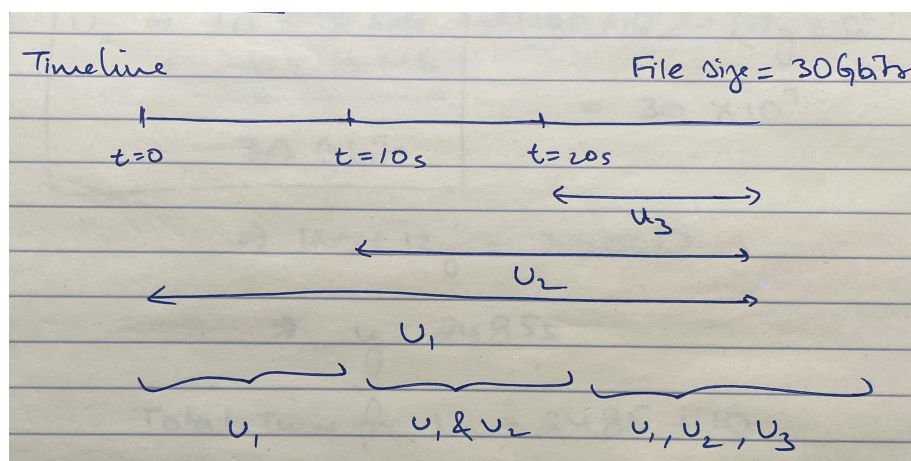 Timeline File Size = 30Gbits
t=0 t=10s t=20s
U3
U2
U1
U1 U1 & U2 U1, U2, U3